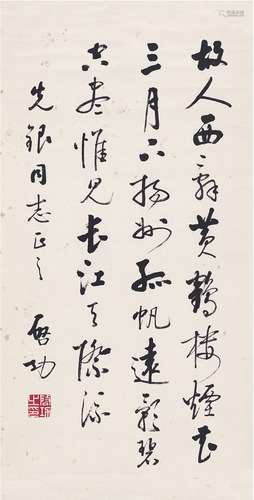 故人西辭黄鶴樓煙花
三月下揚州孤帆遠影碧
空盡惟見長江天際流
先銀同志正之
啟功